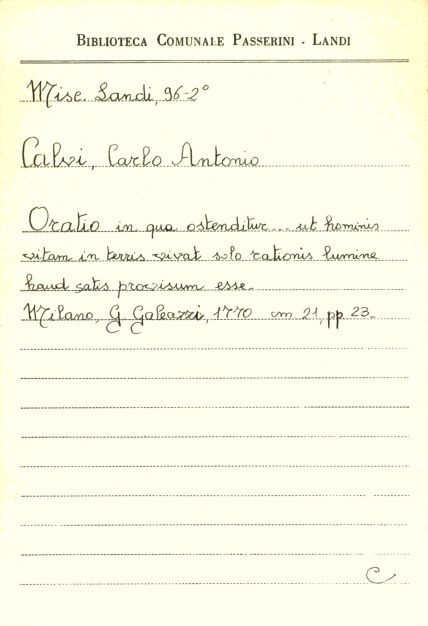 BIBLIOTECA COMUNALE PASSERINI - LANDI
Misc. Landi, 96-2°
Calvi, Carlo Antonio
Oratio in qua ostenditur... ut hominis
vitam in terris vivat solo rationis lumine
haud satis provisum esse.
Milano, G. Galeazzi, 1770 cm 21, pp. 23.
C